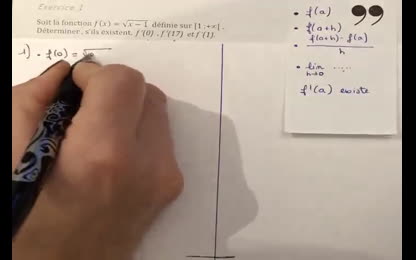 Exercice 1
Soit la fonction f(x) = √x − 1 définie sur [1 ,+∞[ .
Déterminer, s'ils existent, f'(0) , f'(17) et f'(1).
1) • f(0) = √
• f(a)
• f(a+h)
• f(a+h) - f(a)
h
• lim .....
h→0
f'(a) existe